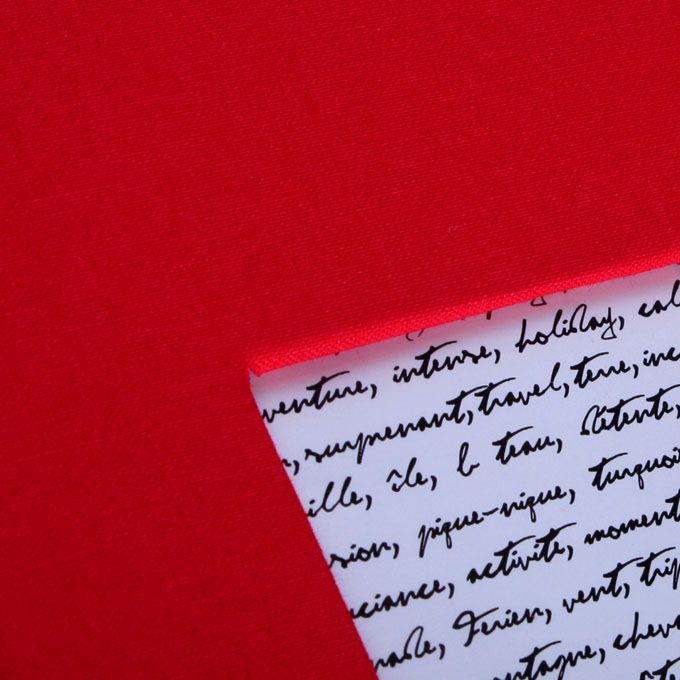 venture, intense, holiday, cal
, surprenant, travel, terre, inc
ille, île, b teau, détente,
sion, pique-nique, turquoi
ciance, activité, moment
nade, Terien, vent, trip
ontagne, chev